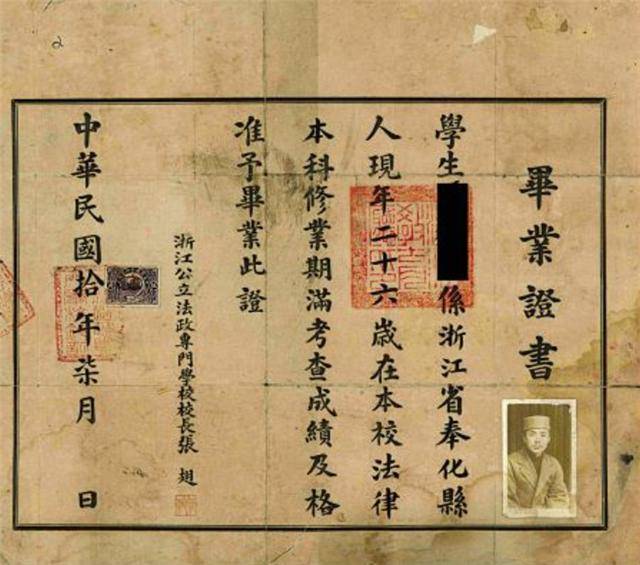 畢業證書
學生
係浙江省奉化縣
人現年二十六歲在本校法律
本科修業期滿考查成績及格
准予畢業此證
浙江公立法政專門學校校長張
中華民國拾年柒月 日
2